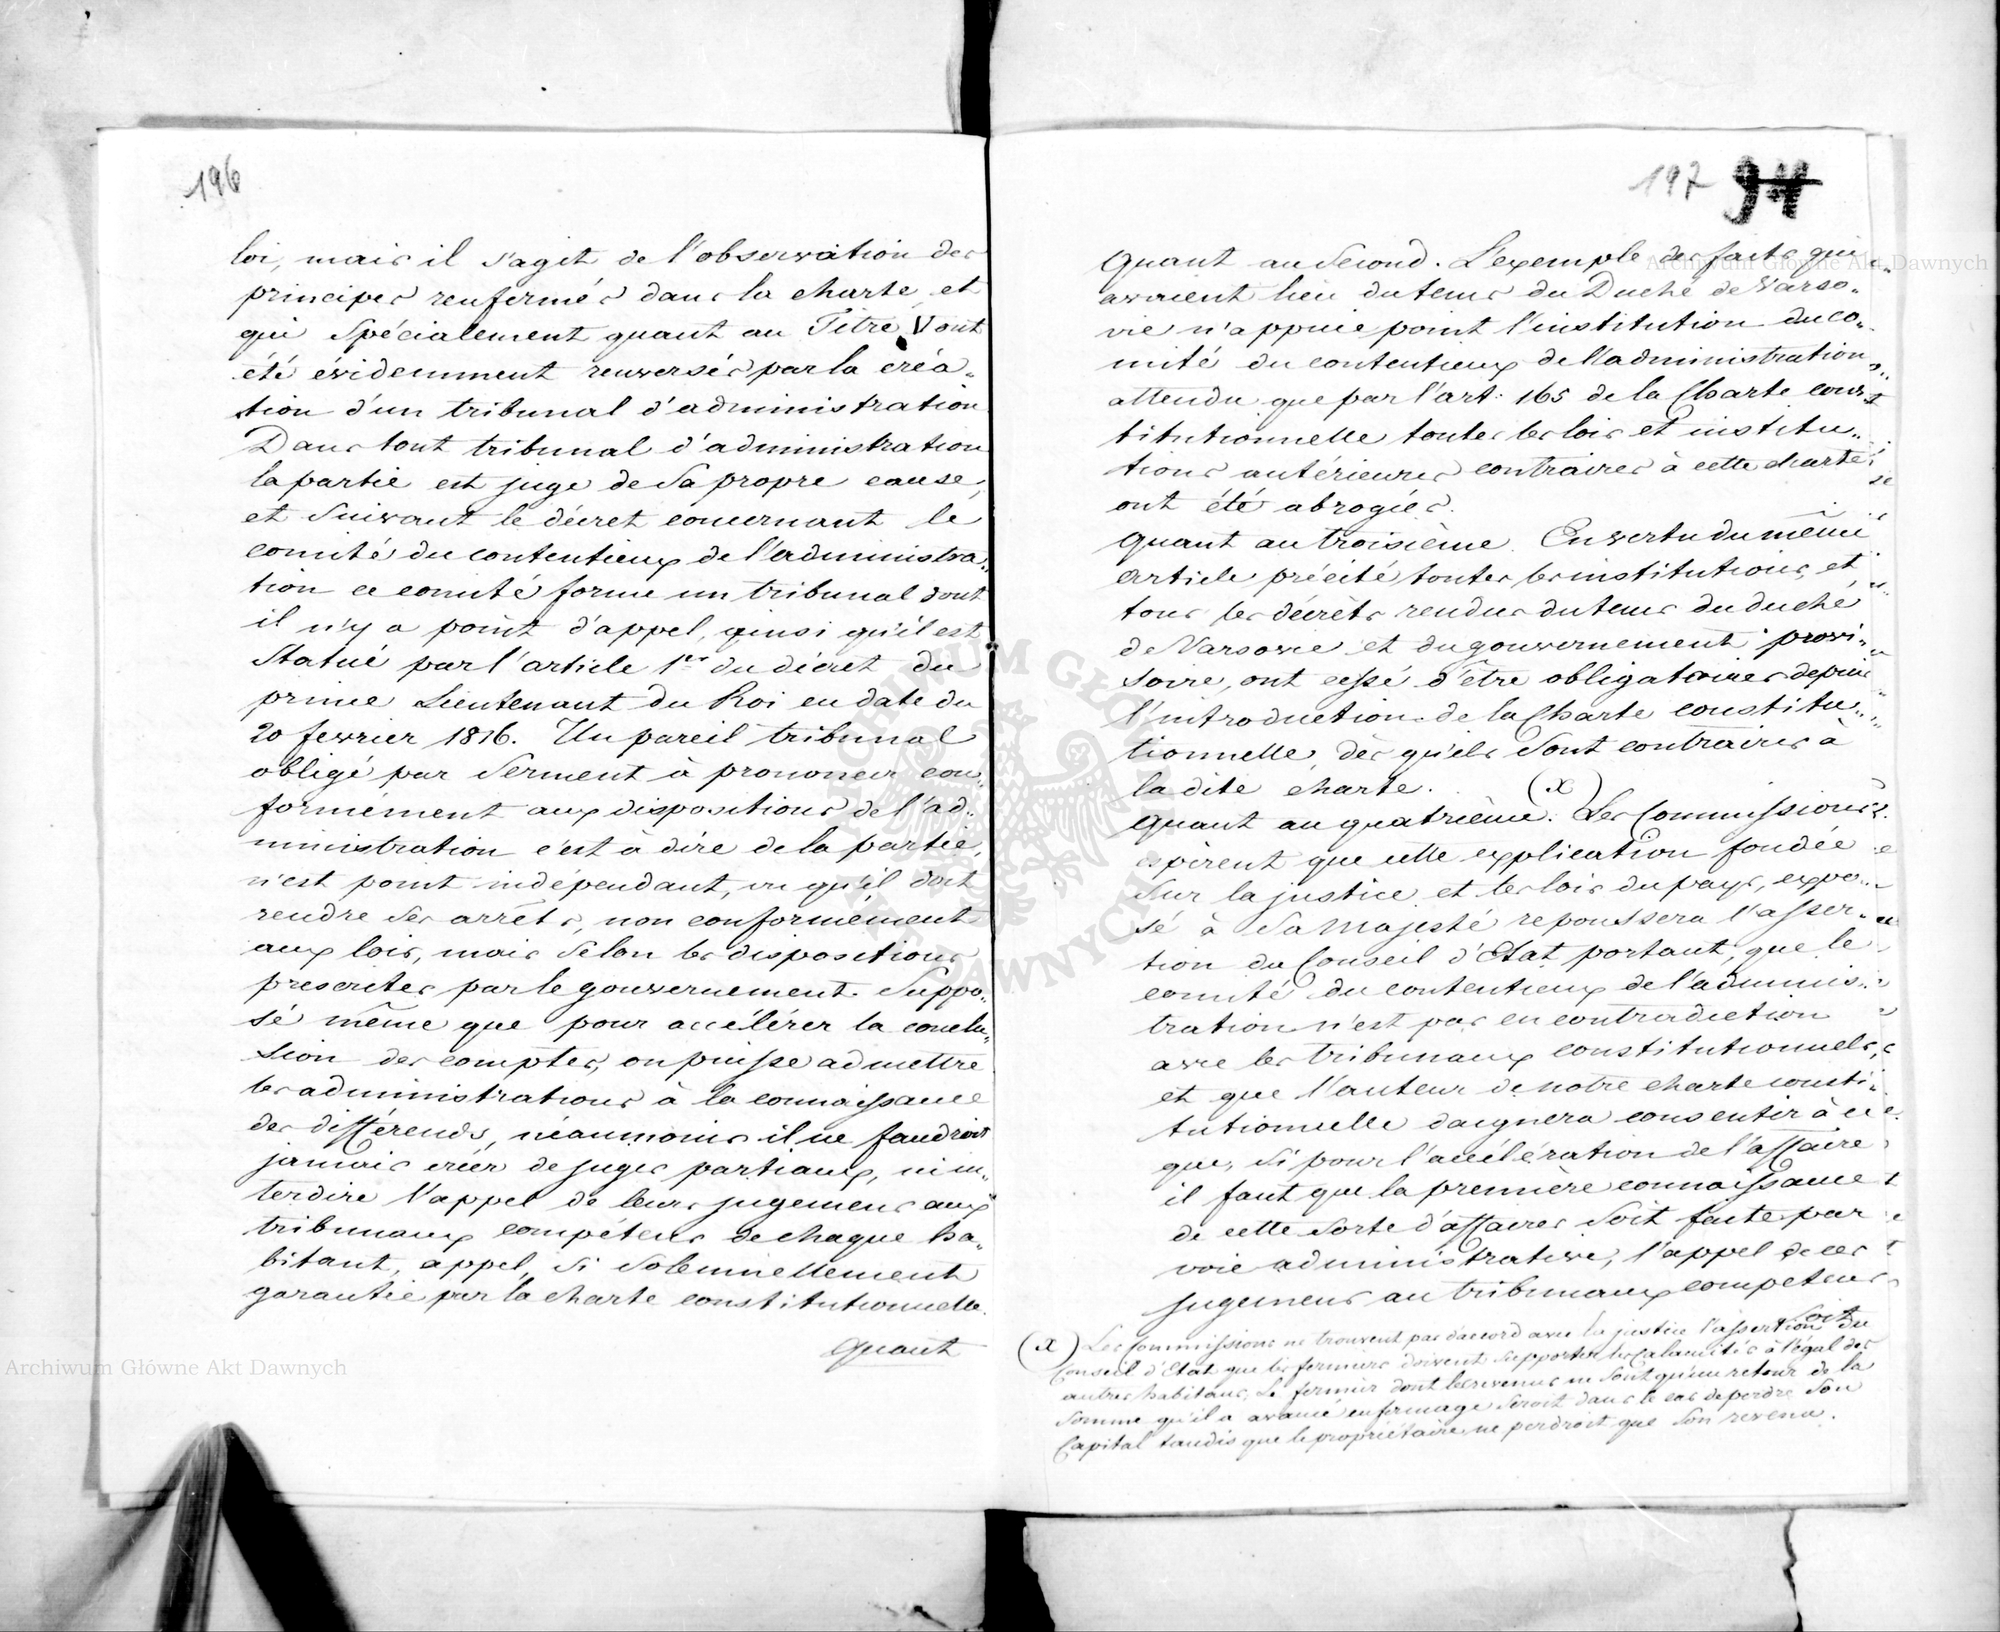 196
loi, mais il s'agit de l'observation des
principes renfermés dans la charte et
qui spécialement quant au Titre V ont
été évidemment renversés par la créa-
tion d'un tribunal d'administration
Dans tout tribunal d'administration
la partie est juge de sa propre cause,
et suivant le décret concernant le
comité du contentieux de l'administra-
tion ce comité forme un tribunal dont
il n'y a point d'appel, ainsi qu'il est
statué par l'article 1er du décret du
prince Lieutenant du Roi en date du
20 fevrier 1816. Un pareil tribunal
obligé par serment à prononcer con-
formément aux dispositions de l'ad-
ministration c'est à dire de la partie,
n'est point indépendant, vu qu'il doit
rendre ses arrêts, non conformément
aux lois, mais selon les dispositions
prescrites par le gouvernement. Suppo-
sé même que pour accélérer la conclu-
sion des comptes, on puisse admettre
les administrations à la connaissance
des différends, néanmoins il ne faudroit
jamais créer de juges partiaux, ni in-
terdire l'appel de leurs jugemens aux
tribunaux compétens de chaque ha-
bitant, appel si solemnellement
garantie par la charte constitutionnelle.
Quant
197 94
Quant au second. L'exemple des faits qui
avaient lieu du tems du Duché de Varso-
vie n'appuie point l'institution du co-
mité du contentieux de l'administration
attendu que par l'art: 165 de la Charte cons-
titutionnelle toutes les lois et institu-
tions antérieures contraires à cette charte
ont été abrogées.
Quant au troisième. En vertu du même
article précité toutes les institutions, et
tous les décrets rendus du tems du duché
de Varsovie et du gouvernement provi-
soire, ont cessé d'être obligatoires depuis
l'introduction de la Charte constitu-
tionnelle, dès qu'ils sont contraires à
la dite charte. (x)
Quant au quatrième. Les Commissions
espèrent que cette explication fondée
sur la justice et les lois du pays, expo-
sé à Sa Majesté repoussera l'asser-
tion du Conseil d'Etat portant, que le
comité du contentieux de l'adminis-
tration n'est pas en contradiction
avec les tribunaux constitutionnels,
et que l'auteur de notre charte consti-
tutionnelle daignera consentir à ce
que, si pour l'accélération de l'affaire
il faut que la première connaissance
de cette sorte d'affaires soit faite par
voie administrative, l'appel de ces
jugemens au tribunaux competens
soit
(x) Les Commissions ne trouvent pas d'accord avec la justice l'assertion du
Conseil d'Etat que les fermiers doivent supporter les calamités à l'égal des
autres habitans, Le fermier dont les revenus ne sont qu'un retour de la
somme qu'il a avancé en fermage seroit dans le cas de perdre son
Capital tandis que le propriétaire ne perdroit que son revenu.
Archiwum Główne Akt Dawnych
Archiwum Główne Akt Dawnych
ARCHIWUM GŁÓWNE AKT DAWNYCH